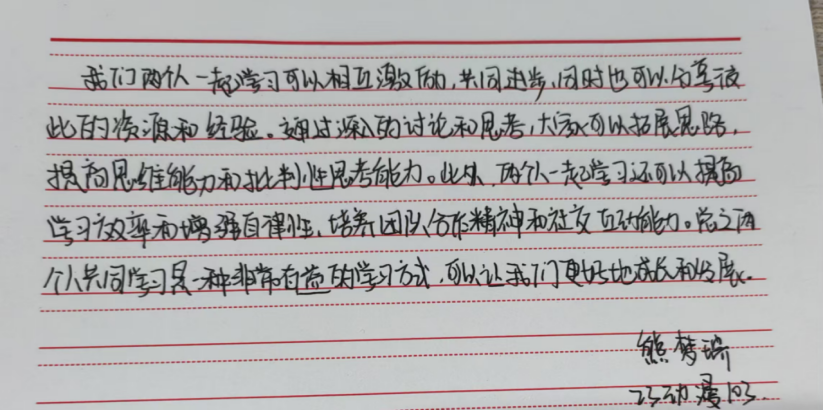 我们两个人一起学习可以相互激励,共同进步,同时也可以分享彼
此的资源和经验。通过深入的讨论和思考,大家可以拓展思路,
提高思维能力和批判性思考能力。此外,两个人一起学习还可以提高
学习效率和增强自律性,培养团队合作精神和社交互动能力。总之两
个人共同学习是一种非常有益的学习方式,可以让我们更好地成长和发展。
熊梦瑞
23动漫103